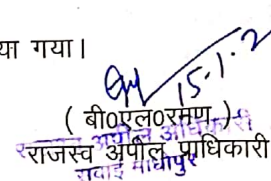 या गया।
15.1.2
( बी0एल0रमण )
राजस्व अपील अधिकारी
राजस्व अपील प्राधिकारी
सवाई माधोपुर